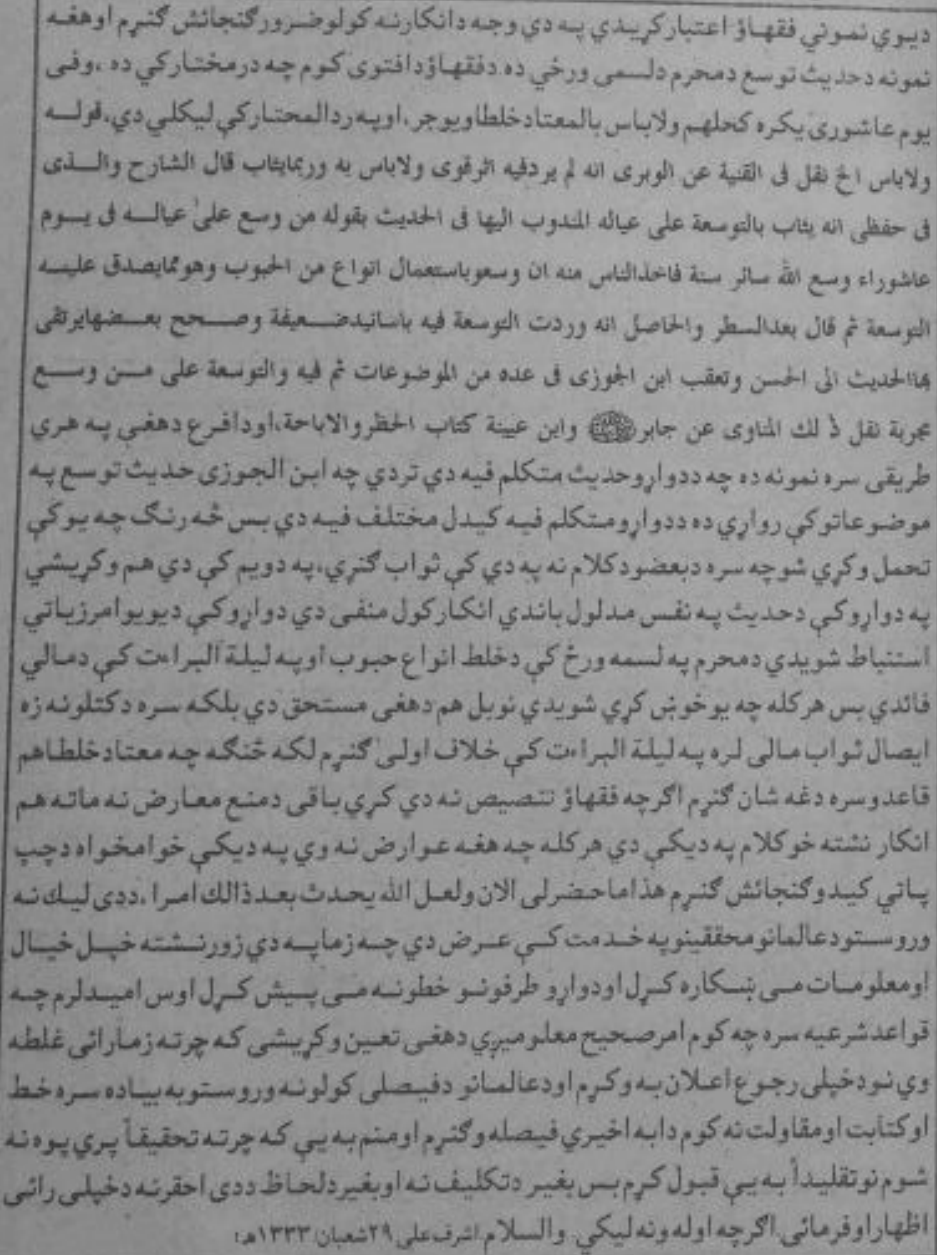 دیوي نموني فقهاؤ اعتبار کړیدي په دي وجه دانکارنه کولو ضرور گنجائش گنړم اوهغه
نمونه دحدیث توسع دمحرم دلسمی ورځي ده دفقهاؤ دافتوی کوم چه درمختارکي ده ،وفی
یوم عاشوری یکره کحلهم ولاباس بالمعتاد خلطا ویوجر،اوپه ردالمحتارکي لیکلي دي،قوله
ولاباس الخ نقل فی القنیة عن الوبری انه لم یرد فیه اثر قوی ولاباس به وربمایثاب قال الشارح والذی
فی حفظی انه یثاب بالتوسعة علی عیاله المندوب الیها فی الحدیث بقوله من وسع علیٰ عیاله فی یوم
عاشوراء وسع الله سائر سنة فاخذالناس منه ان وسعوباستعمال انواع من الحبوب وهوممایصدق علیه
التوسعة ثم قال بعدالسطر والحاصل انه وردت التوسعة فیه باسانیدضعیفة وصحح بعضهایرتقی
بهاالحدیث الی الحسن وتعقب ابن الجوزی فی عده من الموضوعات ثم فیه والتوسعة علی من وسع
مجربة نقل ذ لك المناوی عن جابر وابن عیینة کتاب الحظر والاباحة،اودافرع دهغی په هري
طریقی سره نمونه ده چه ددواړو حدیث متکلم فیه دي تردي چه ابن الجوزی حدیث توسع په
موضوعاتوکي رواړي ده ددواړو متکلم فیه کیدل مختلف فیه دي بس څه رنگ چه یوکي
تحمل وکړي شوچه سره دبعضو دکلام نه په دي کي ثواب گنړي،په دویم کي دي هم وکړیشي
په دواړوکي دحدیث په نفس مدلول باندي انکارکول منفی دي دواړوکي دیویوامرزیاتي
استنباط شویدي دمحرم په لسمه ورځ کي دخلط انواع حبوب اوپه لیلة البراءت کي دمالي
فائدي بس هرکله چه یوخوښ کړي شویدي نوبل هم دهغی مستحق دي بلکه سره دکتلونه زه
ایصال ثواب مالی لره په لیلة البراءت کي خلاف اولی گنړم لکه څنگه چه معتاد خلطاهم
قاعدوسره دغه شان گنړم اگرچه فقهاؤ تنصیص نه دي کړي باقی دمنع معارض نه ماته هم
انکار نشته خوکلام په دیکي دي هرکله چه هغه عوارض نه وي په دیکي خوامخواه دچپ
پاتي کیدوگنجائش گنړم هذاماحضرلی الان ولعل الله یحدث بعد ذالك امرا ،ددی لیك نه
وروستو دعالمانو محققینوپه خدمت کي عرض دي چه زماپه دي زور نشته خپل خیال
اومعلومات می ښکاره کړل اودواړو طرفونو خطونه می پیش کړل اوس امیدلرم چه
قواعدشرعیه سره چه کوم امرصحیح معلومیږي دهغی تعین وکړیشی که چرته زمارائی غلطه
وي نو دخپلی رجوع اعلان به وکړم اودعالمانو دفیصلی کولونه وروستوبه بیاده سره خط
اوکتابت اومقاولت نه کوم دابه اخیري فیصله وگنړم اومنم به یي که چرته تحقیقاً پري پوه نه
شوم نوتقلیداً به یي قبول کړم بس بغیر دتکلیف نه اوبغیر دلحاظ ددی احقرنه دخپلی رائی
اظهار اوفرمائی اگرچه اوله ونه لیکي والسلام اشرف علی ۲۹شعبان ۱۳۳۳هـ؛